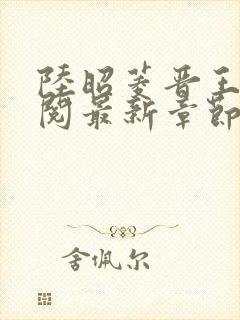 陸昭菱晋王
閱最新章節
舍佩尔